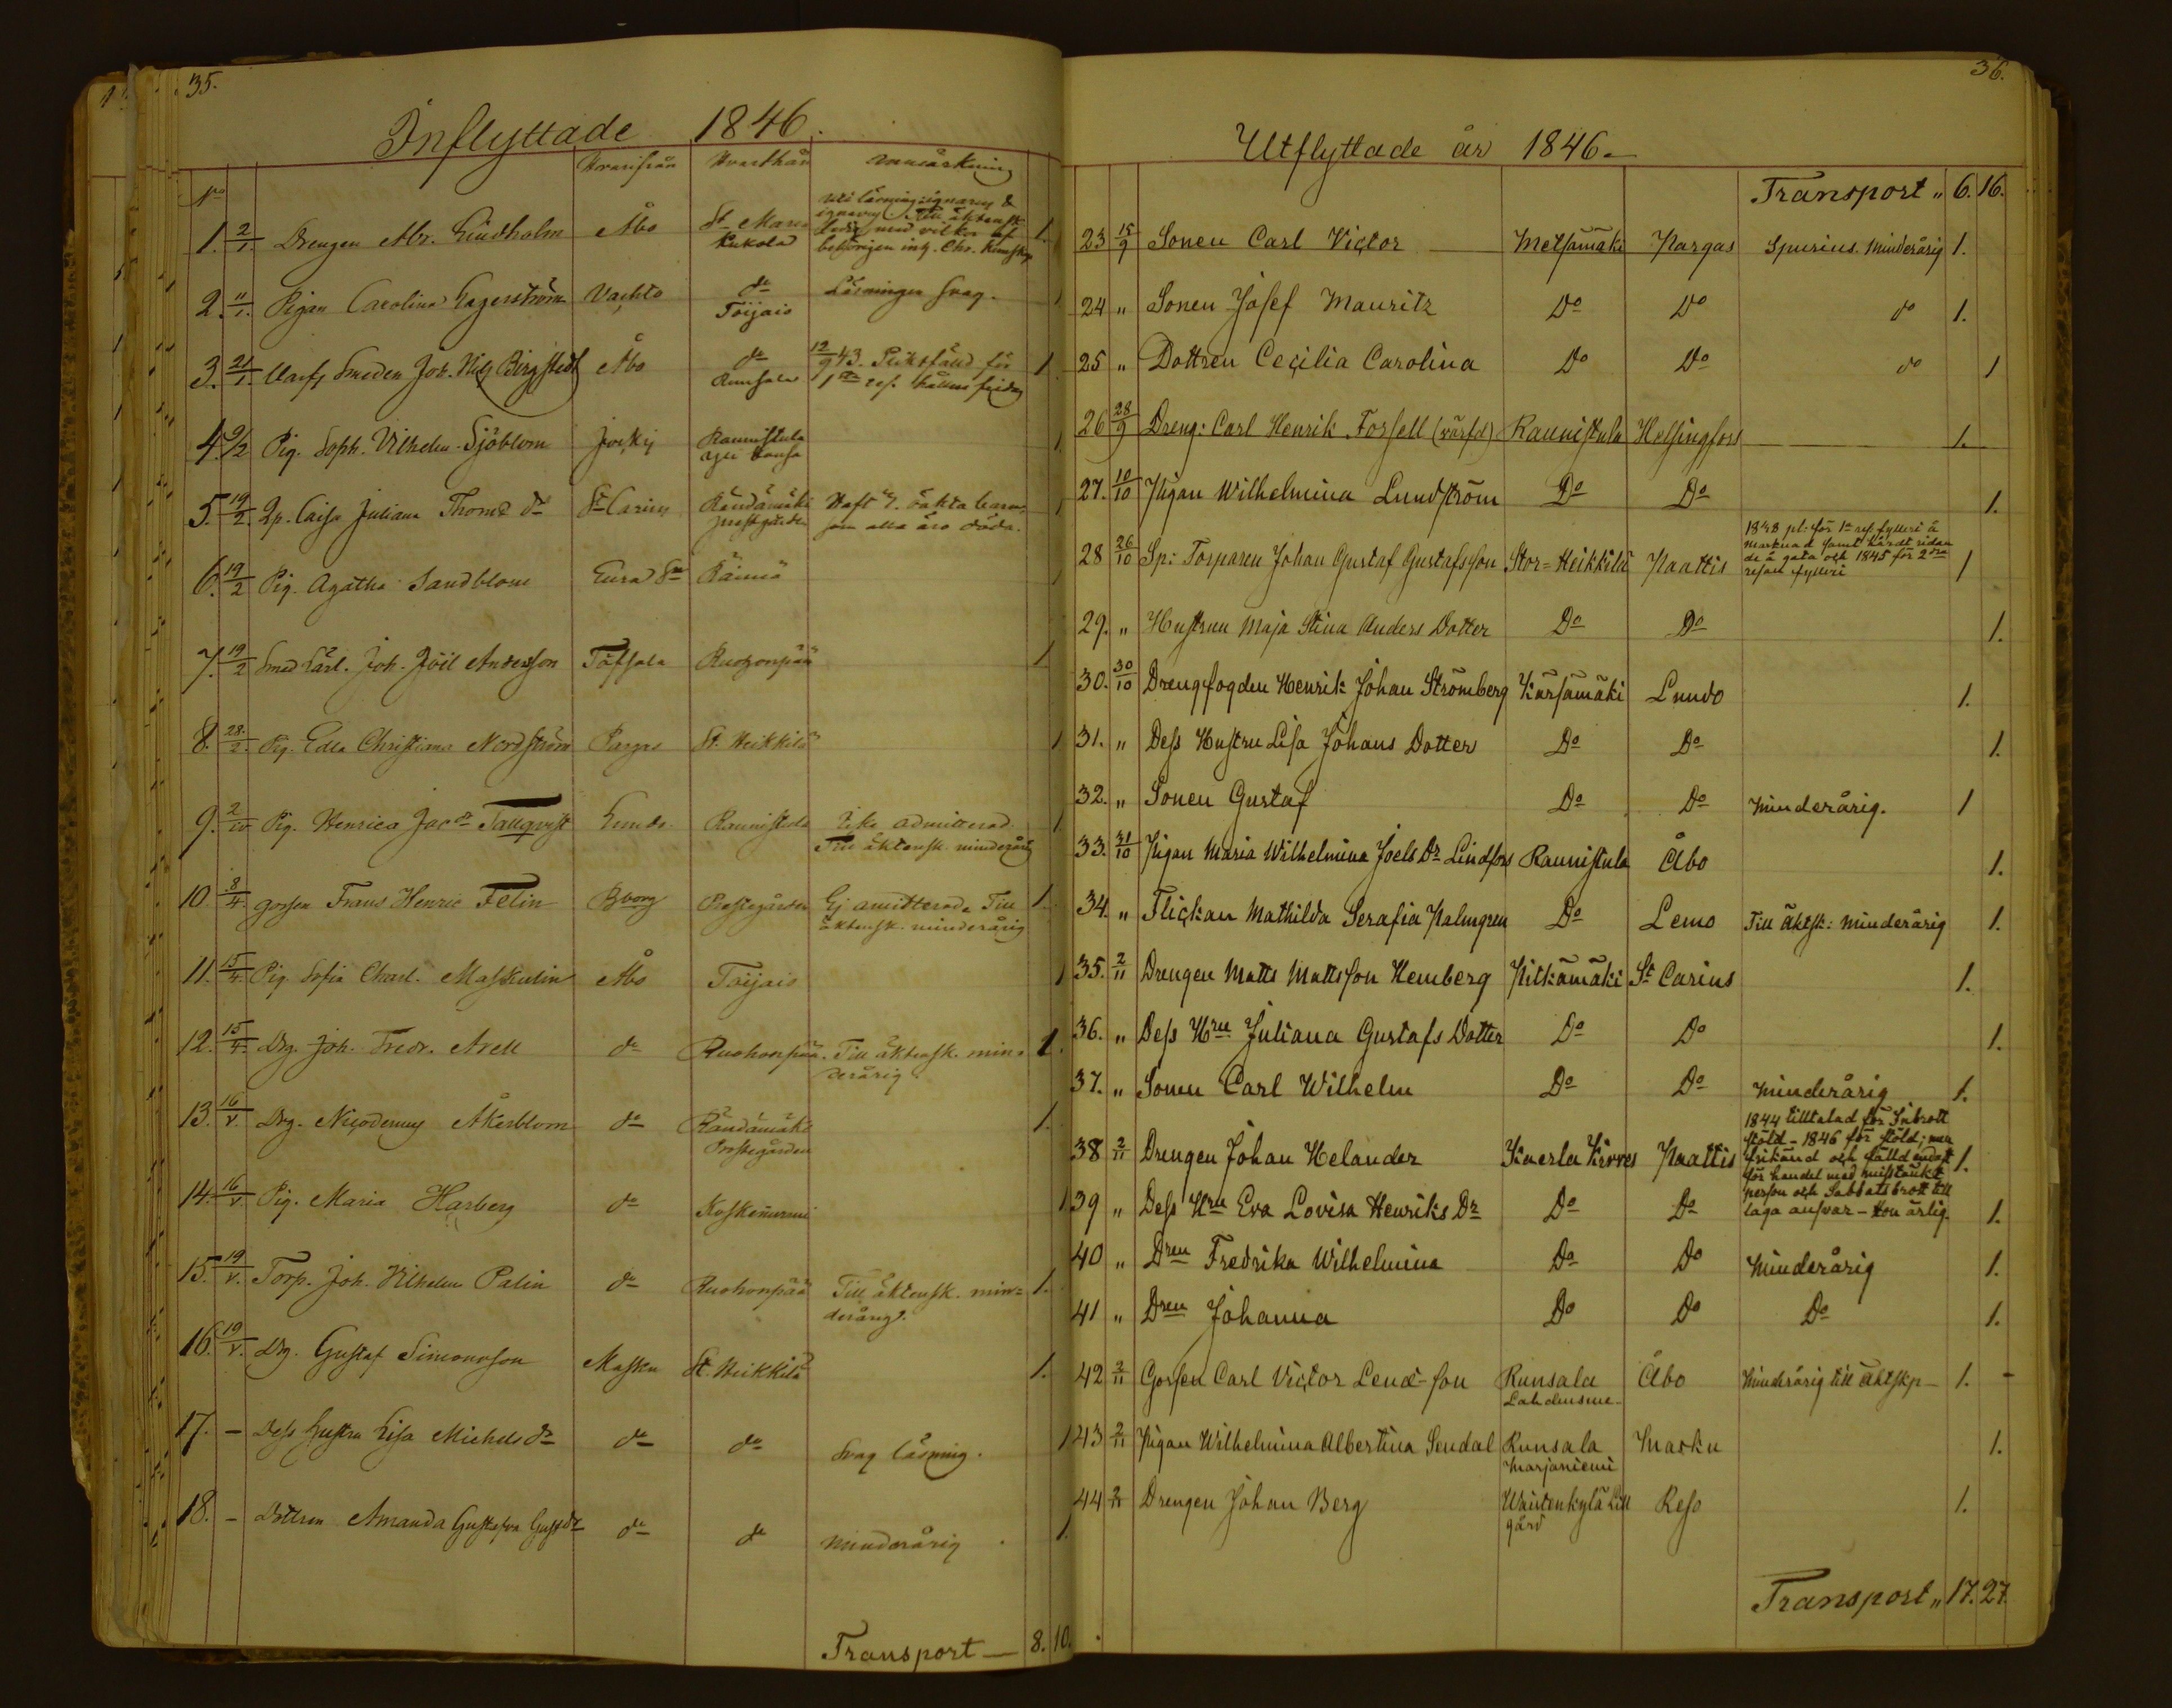 35.
Inflyttade 1846.
No Hvarifrån Hvarthän Anmärkning
1. 2/1. Drengen Abr. Lindholm Åbo St Marie Kukola 1.
2. 11/1. Pigan Carolina Lagerström Vachto do Toijais Läsningen svag.
3. 21/1. Joh. Nils Bergstedt Åbo do Runsala 12/9 43. för 1sta res. 1
4. 9/2 Pig. Soph. Vilhelm. Sjöblom Raunistula
5. 19/2. Caisa Juliana Thoms dr St Carins Rändämäki Haft 2 oäkta barn, som alla äro döda.
6. 19/2 Pig. Agatha Sandblom Eura
7. 19/2 Joh. Joil Andersson Töfsala Ruohonpää 1
8. 28./2. Pig. Edla Christiana Nordström Pargas St. Heikkilä 1
9. 2/10 Pig. Henrica Jac dr Tallqvist Lundo Raunistula admitterad Till äktensk. minderårig
10. 8/4 gossen Frans Henric Felin Bborg Prestegården Ej amitterad. Till äktensk. minderårig 1.
11. 15/4. Pig. Sofia Charl. Maskulin Åbo Toijais 1
12. 15/4. Drg. Joh. Fredr. Avell do Ruohonpää. Till äktensk. minderårig 1.
13. 16/V. Drg. Nicodemus Åkerblom do Rändämäki Prestegården 1.
14. 16/V. Pig. Maria Harberg do Koskennurmi 1
15. 19/V. Torp. Joh. Vilhelm Palin do Ruohonpää Till äktensk. minderårig. 1.
16. 19/V. Drg. Gustaf Simonsson Masku St. Heikkilä 1.
17. – Dess hustru Lisa Michels dr do do Svag läsning. 1
18. – Dottren Amanda Gustafva Gust dr do do minderårig 1.
Transport — 8. 10.
36.
Utflyttade år 1846.
Transport " 6. 16.
23 15/9 Sonen Carl Victor Metsämäki Pargas Spurius. Minderårig 1.
24 " Sonen Josef Mauritz Do Do do 1.
25 " Dottren Cecilia Carolina Do Do do 1
26 28/9 Dreng: Carl Henrik Forsell (värfd) Raunistula Helsingfors 1.
27. 10/10 Pigan Wilhelmina Lundström Do Do 1.
28 26/10 Sp: Torparen Johan Gustaf Gustafsson Stor=Heikkilä Paattis 1838 pl. för 1a res. fylleri å marknad samt hårdt ridande å gata och 1845 för 2dra resan fylleri 1
29. " Hustrun Maja Stina Anders Dotter Do Do 1.
30. 30/10 Drengfogden Henrik Johan Strömberg Kärsämäki Lundo 1.
31. " Dess Hustru Lisa Johans Dotter Do Do 1.
32. " Sonen Gustaf Do Do Minderårig. 1
33. 31/10 Pigan Maria Wilhelmina Joels Dr Lindfors Raunistula Åbo 1.
34. " Flickan Mathilda Serafia Palmgren Do Lemo Till Äktsk: minderårig 1.
35. 2/11 Drengen Matts Mattsson Hemberg Pitkämäki St Carins 1.
36. " Dess Hru Juliana Gustafs Dotter Do Do 1.
37. " Sonen Carl Wilhelm Do Do Minderårig 1.
38 2/11 Drengen Johan Helander Kaerla Kirves Paattis 1844 tilltalad för Inbrott stöld – 1846 för stöld; men frikänd och fälld endast för handel med misstänkt person och Sabbatsbrott till laga ansvar – 1.
39 " Dess Hru Eva Lovisa Henriks Dr Do Do 1.
40 " Dren Fredrika Wilhelmina Do Do Minderårig 1.
41 " Dren Johanna Do Do Do 1.
42 2/11 Gossen Carl Victor Lend-son Runsala Åbo Minderårig till Äktskp – 1. -
43 2/11 Pigan Wilhelmina Albertina Sendal Runsala Marjaniemi Masku 1.
44 Drengen Johan Berg Wäntenkylä Lill gård Reso 1.
Transport " 17. 27.